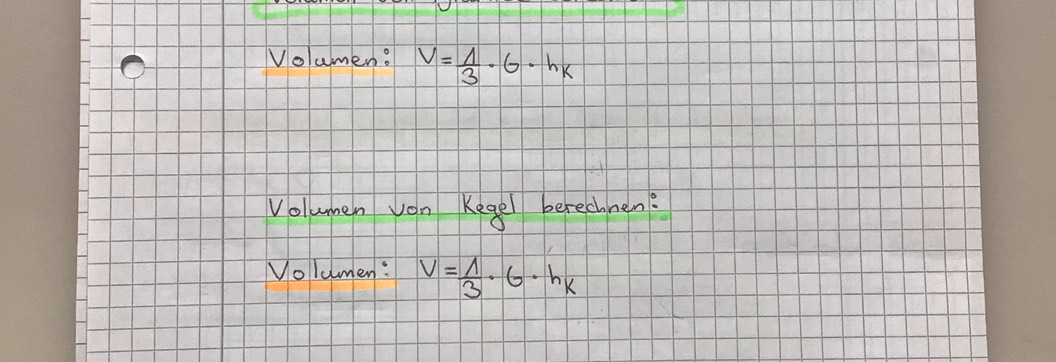 Volumen: V = 1/3 · G · hK
Volumen von Kegel berechnen:
Volumen: V = 1/3 · G · hK